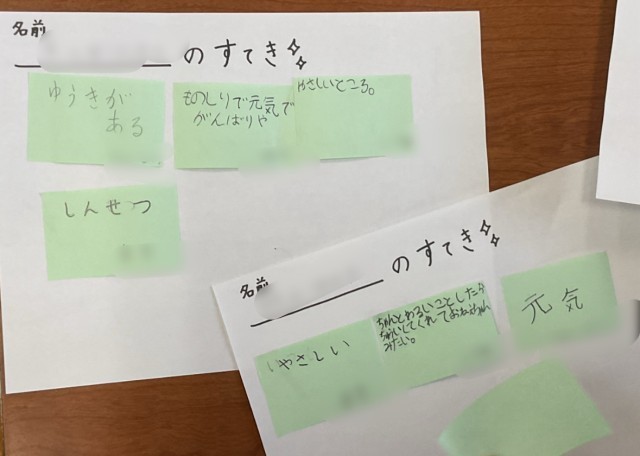 名前
のすてき
ゆうきが
ある
ものしりで元気で
がんばりや
やさしいところ。
しんせつ
名前
のすてき
やさしい
ちゃんとわるいことしたら
してくれておねえちゃん
みたい。
元気